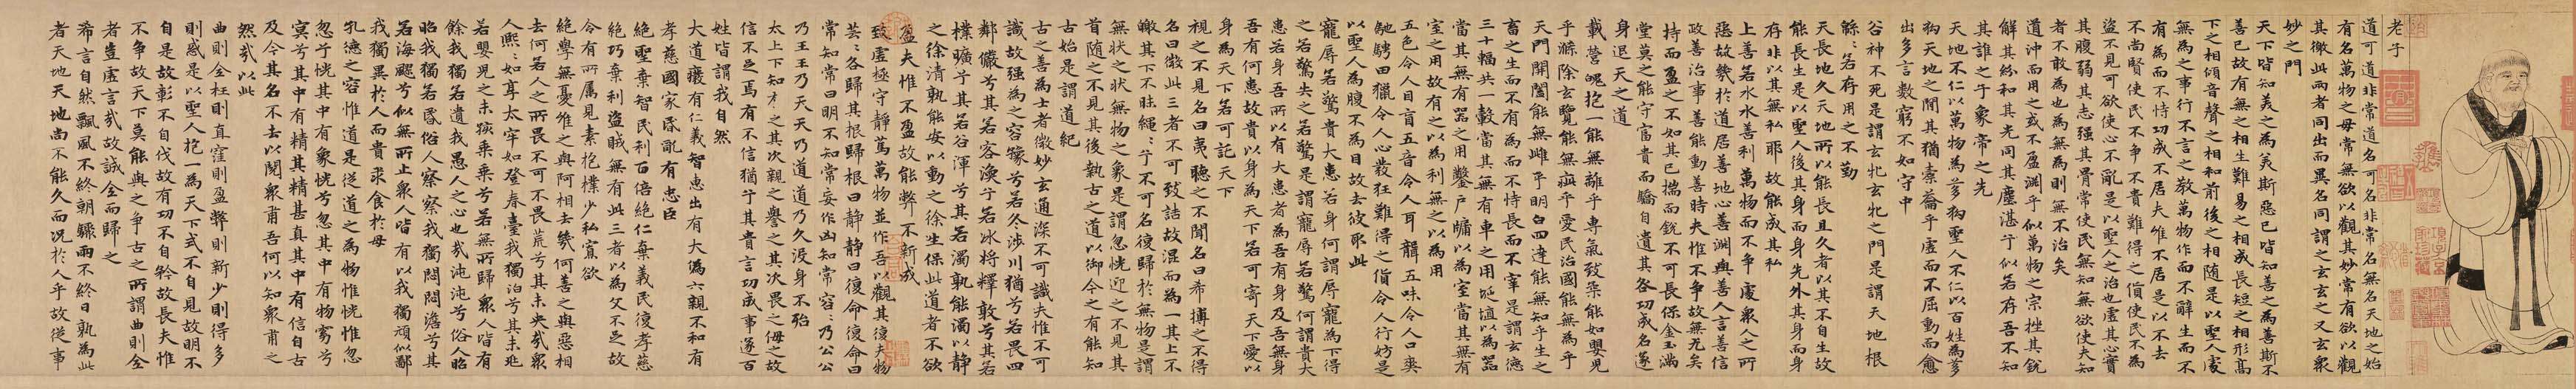 老子
道可道非常道名可名非常名無名天地之始
有名萬物之母常無欲以觀其妙常有欲以觀
其徼此兩者同出而異名同謂之玄玄之又玄衆
妙之門
天下皆知美之為美斯惡已皆知善之為善斯不
善已故有無之相生難易之相成長短之相形高
下之相傾音聲之相和前後之相随是以聖人處
無為之事行不言之教萬物作而不辭生而不
有為而不恃功成不居夫惟不居是以不去
不尚賢使民不争不貴難得之貨使民不為
盗不見可欲使心不亂是以聖人之治也虚其心實
其腹弱其志强其骨常使民無知無欲使夫知
者不敢為也為無為則無不治矣
道沖而用之或不盈淵乎似萬物之宗挫其銳
解其紛和其光同其塵湛乎似若存吾不知
其誰之子象帝之先
天地不仁以萬物為芻狗聖人不仁以百姓為芻
狗天地之間其猶橐籥乎虚而不屈動而愈
出多言數窮不如守中
谷神不死是謂玄牝玄牝之門是謂天地根
緜緜若存用之不勤
天長地久天地所以能長且久者以其不自生故
能長生是以聖人後其身而身先外其身而身
存非以其無私耶故能成其私
上善若水水善利萬物而不争處衆人之所
惡故幾於道居善地心善淵與善人言善信
政善治事善能動善時夫惟不争故無尤矣
持而盈之不如其已揣而銳不可長保金玉滿
堂莫之能守富貴而驕自遺其咎功成名遂
身退天之道
載營魄抱一能無離乎專氣致柔能如嬰兒
乎滌除玄覽能無疵乎愛民治國能無為乎
天門開闔能無雌乎明白四達能無知乎生之
畜之生而不有為而不恃長而不宰是謂玄德
三十輻共一轂當其無有車之用埏埴以為器
當其無有器之用鑿戶牖以為室當其無有
室之用故有之以為利無之以為用
五色令人目盲五音令人耳聾五味令人口爽
馳騁田獵令人心發狂難得之貨令人行妨是
以聖人為腹不為目故去彼取此
寵辱若驚貴大患若身何謂辱寵為下得
之若驚失之若驚是謂寵辱若驚何謂貴大
患若身吾所以有大患者為吾有身及吾無身
吾有何患故貴以身為天下若可寄天下愛以
身為天下若可託天下
視之不見名曰夷聽之不聞名曰希搏之不得
名曰微此三者不可致詰故混而為一其上不
皦其下不昧繩繩兮不可名復歸於無物是謂
無狀之狀無物之象是謂忽恍迎之不見其
首随之不見其後執古之道以御今之有能知
古始是謂道紀
古之善為士者微妙玄通深不可識夫惟不可
識故强為之容豫兮若冬涉川猶兮若畏四
鄰儼兮其若客渙兮若冰將釋敦兮其若
樸曠兮其若谷渾兮其若濁孰能濁以静
之徐清孰能安以動之徐生保此道者不欲
盈夫惟不盈故能弊不新成
致虚極守静篤萬物並作吾以觀其復夫物
芸芸各歸其根歸根曰静静曰復命復命曰
常知常曰明不知常妄作凶知常容容乃公公
乃王王乃天天乃道道乃久没身不殆
太上下知有之其次親之譽之其次畏之侮之故
信不足焉有不信猶兮其貴言功成事遂百
姓皆謂我自然
大道廢有仁義智惠出有大偽六親不和有
孝慈國家昏亂有忠臣
絕聖棄智民利百倍絕仁棄義民復孝慈
絕巧棄利盗賊無有此三者以為文不足故
令有所属見素抱樸少私寡欲
絕學無憂唯之與阿相去幾何善之與惡相
去何若人之所畏不可不畏荒兮其未央哉衆
人熙熙如享太牢如登春臺我獨泊兮其未兆
若嬰兒之未孩乘乘兮若無所歸衆人皆有
餘我獨若遺我愚人之心也哉沌沌兮俗人昭
昭我獨若昏俗人察察我獨悶悶澹兮其
若海飂兮似無所止衆人皆有以我獨頑似鄙
我獨異於人而貴求食於母
孔德之容惟道是從道之為物惟恍惟忽
忽兮恍其中有象恍兮忽其中有物窈兮
冥兮其中有精其精甚真其中有信自古
及今其名不去以閱衆甫吾何以知衆甫之
然哉以此
曲則全枉則直窪則盈弊則新少則得多
則惑是以聖人抱一為天下式不自見故明不
自是故彰不自伐故有功不自矜故長夫惟
不争故天下莫能與之争古之所謂曲則全
者豈虚言哉故誠全而歸之
希言自然飄風不終朝驟雨不終日孰為此
者天地天地尚不能久而况於人乎故從事